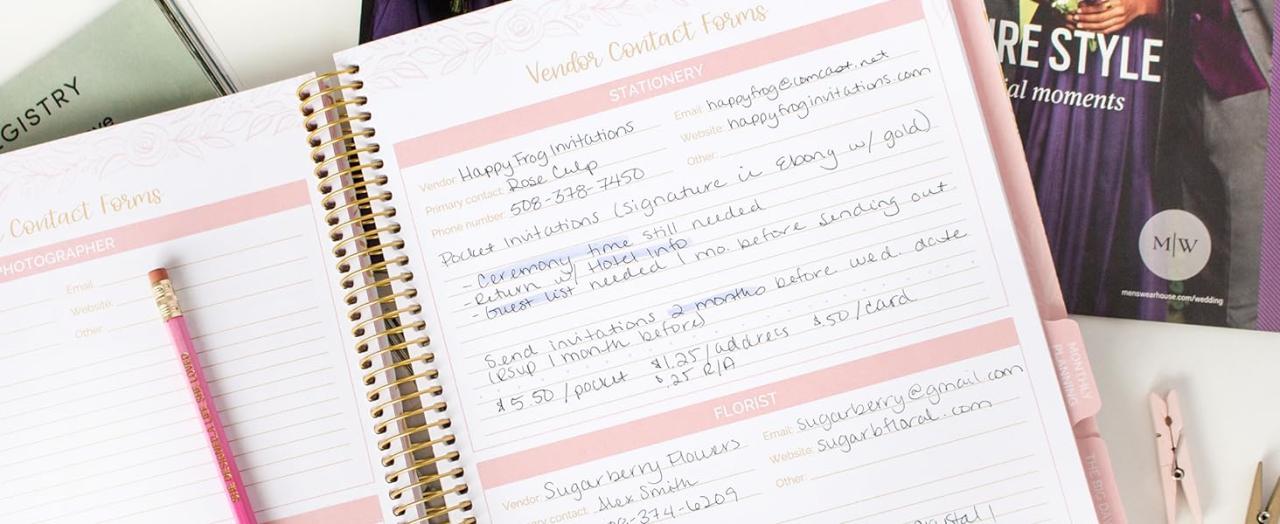 EGISTRY
Contact Forms
PHOTOGRAPHER
Email:
Website:
Other:
Vendor Contact Forms
STATIONERY
Vendor: Happy Frog Invitations
Email: happyfrog@comcast.net
Primary contact: Rose Culp
Website: happyfroginvitations.com
Phone number: 508-378-7450
Other:
Pocket Invitations (Signature in Ebony w/ gold)
- Ceremony time still needed
- Return w/ Hotel Info
- Guest list needed 1 mo. before sending out
Send invitations 2 months before wed. date
(rsvp 1 month before)
$5.50/pocket $1.25/address $.50/card
$.25 R/A
FLORIST
Vendor: Sugarberry Flowers
Email: sugarberry@gmail.com
contact: Alex Smith
Website: sugarbfloral.com
374-6209
Other:
MONTHLY
PLANNING
THE BIG
RE STYLE
ial moments
M|W
menswearhouse.com/wedding